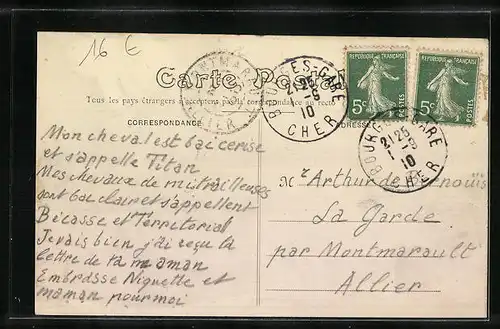 16 €
Carte Postale
Tous les pays étrangers n'acceptent pas la correspondance au recto
CORRESPONDANCE
ADRESSE
Mon cheval est bai cerise
et s'appelle Titan
Mes chevaux de mitrailleuses
sont bai clair et s'appellent
Bécasse et Territorial
Je vais bien j'ai reçu la
lettre de ta maman
Embrasse Niquette et
maman pour moi
Mr Arthur de
La Garde
par Montmarault
Allier
RÉPUBLIQUE FRANÇAISE
5c
POSTES
RÉPUBLIQUE FRANÇAISE
5c
POSTES
BOURGES-GARE
21 25
1 -5
10
CHER
BOURGES-GARE
21 25
1 -5
10
CHER
MONTMARAULT
ALLIER